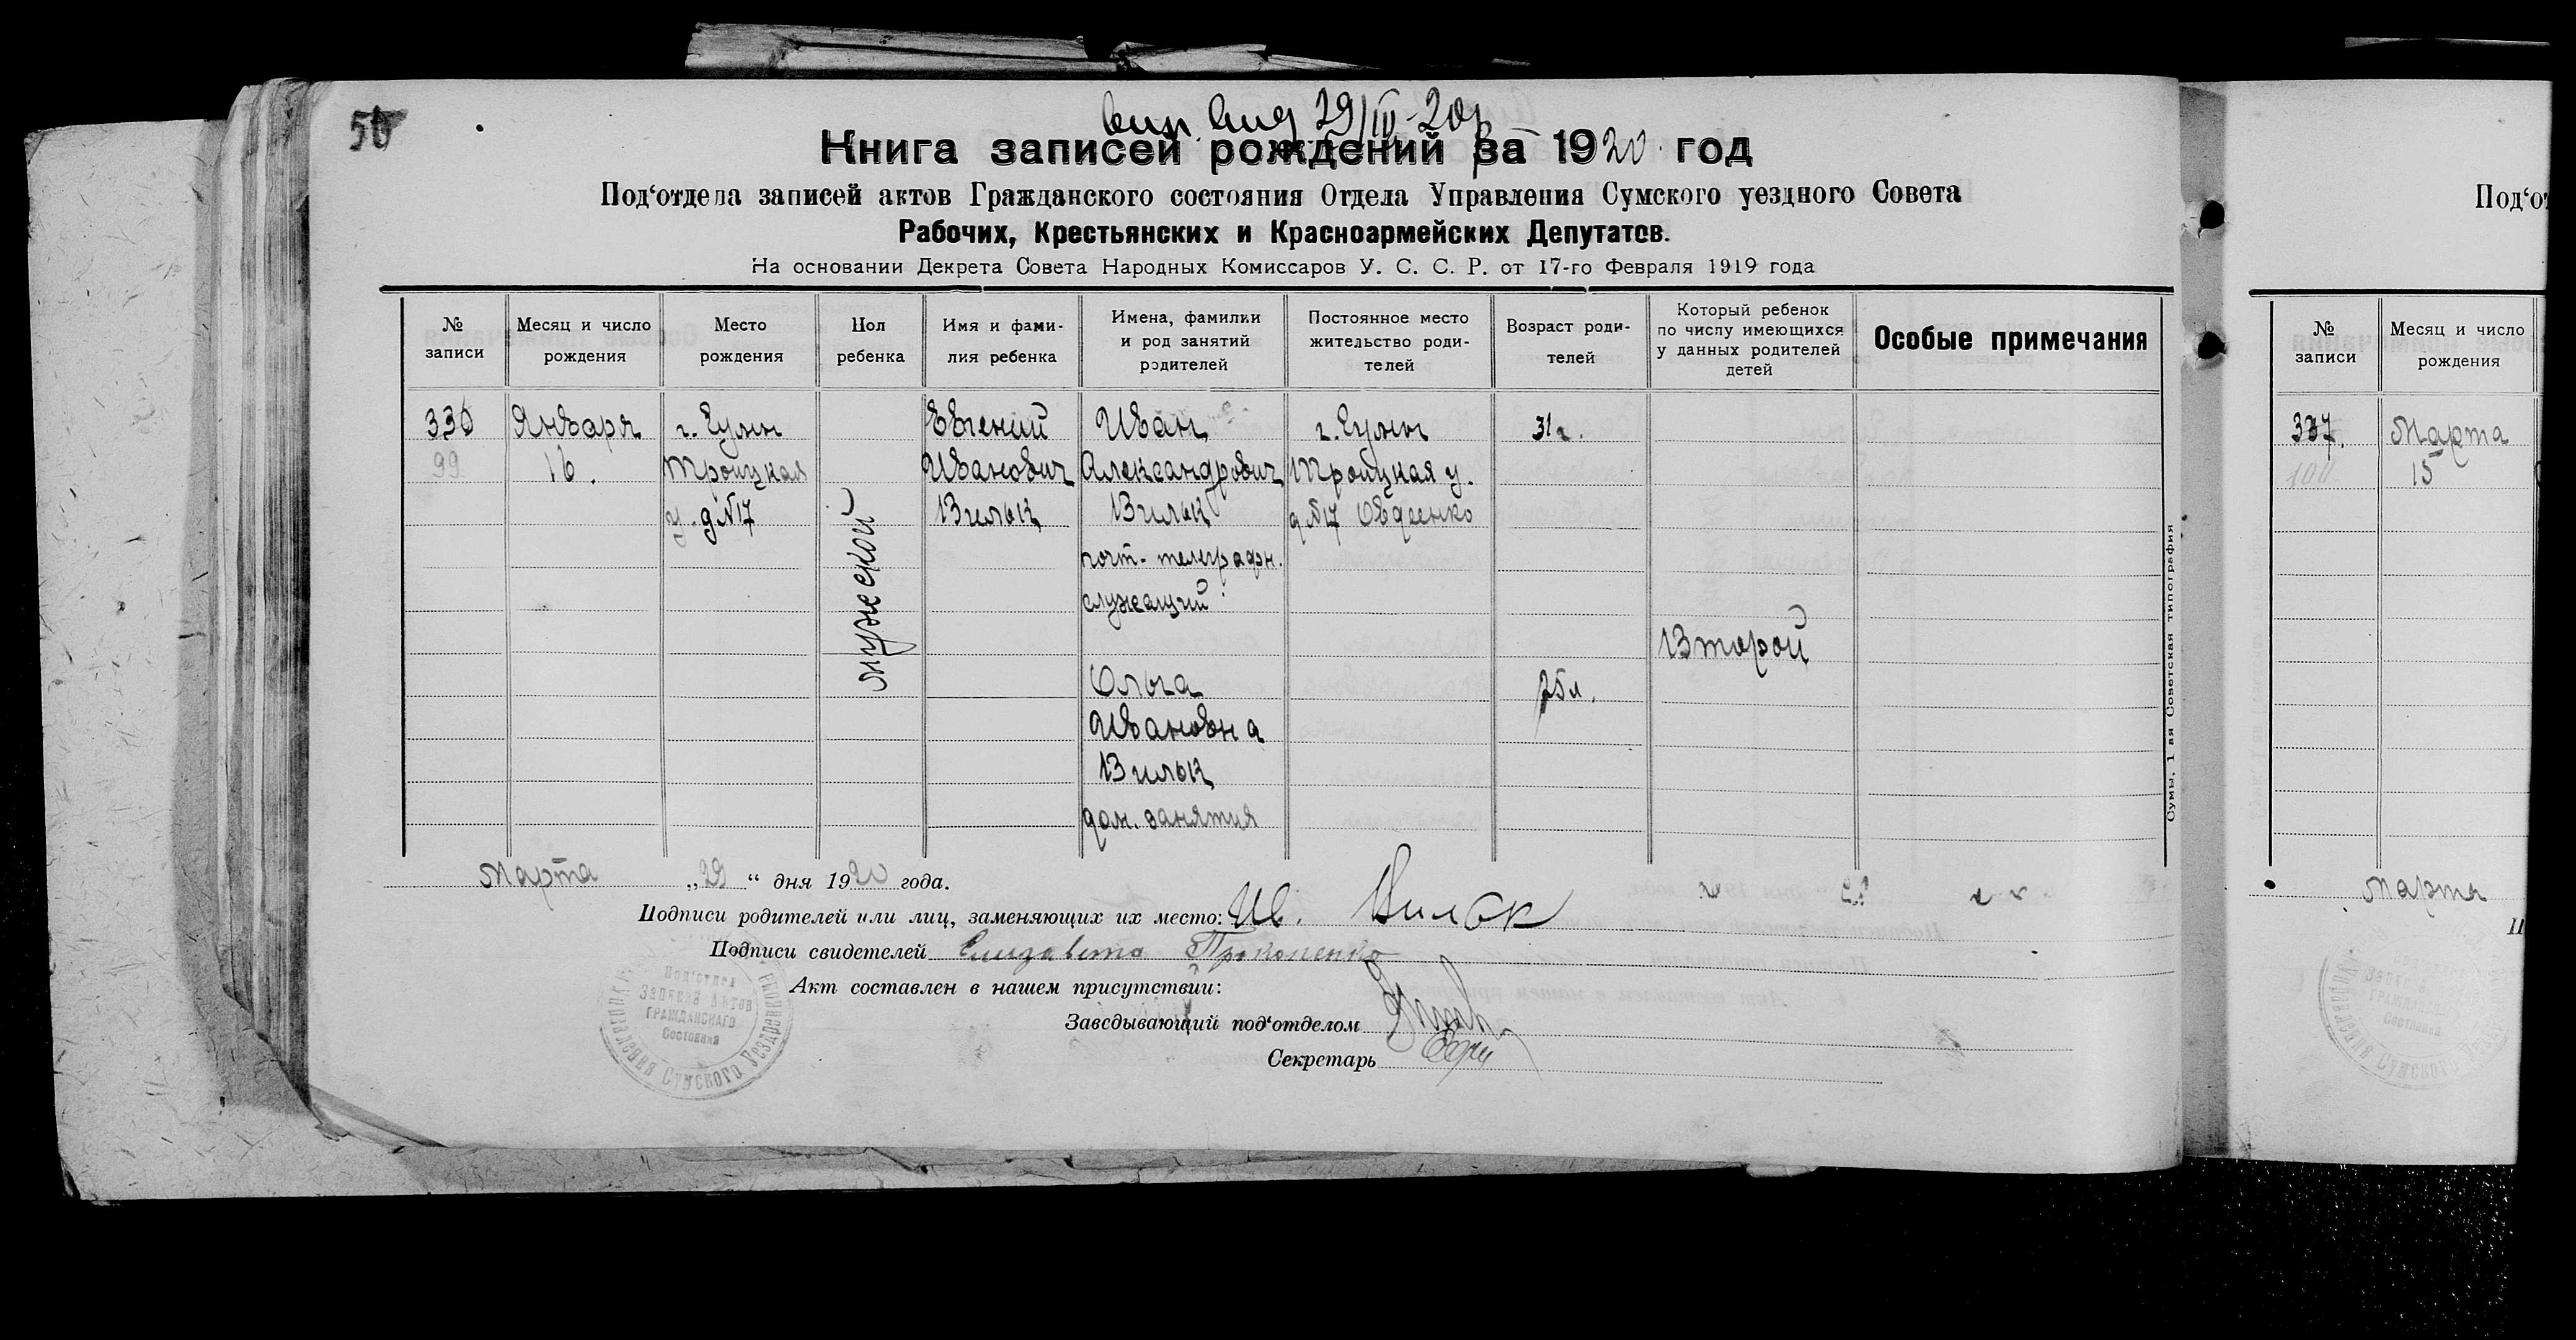 50
29/IV-20г
Книга записей рождений за 1920 год
Под‘отдела записей актов Гражданского состояния Отдела Управления Сумского уездного Совета
Рабочих, Крестьянских и Красноармейских Депутатов.
На основании Декрета Совета Народных Комиссаров У. С. С. Р. от 17-го Февраля 1919 года
№ записи
Месяц и число рождения
Место рождения
Пол ребенка
Имя и фами-
лия ребенка
Имена, фамилии
и род занятий
родителей
Постоянное место
жительство роди-
телей
Возраст роди-
телей
Который ребенок
по числу имеющихся
у данных родителей
детей
Особые примечания
336
99
Января
16.
г. Сумы
Троицкая
у. д №17
мужской
Евгений
Иванович
Вильк
Иван
Александрович
Вильк
почт-телеграфн.
служащий
Ольга
Ивановна
Вильк
дом. занятия
г. Сумы
Троицкая у.
д №17 Овдиенко
31 г.
25 л.
Второй
Сумы, 1 ая Советская типография
Марта „29“ дня 1920 года.
Подписи родителей или лиц, заменяющих их место: Ив. Вильк
Подписи свидетелей Елизавета Прокопенко
Акт составлен в нашем присутствии:
Заведывающий под‘отделом
Секретарь
Под‘отдел
Записей Актов
Гражданскаго
Состояния
Управления Сумского Уездревкома
Под‘от
№ записи
Месяц и число
рождения
337.
100
Марта
15
Марта
П